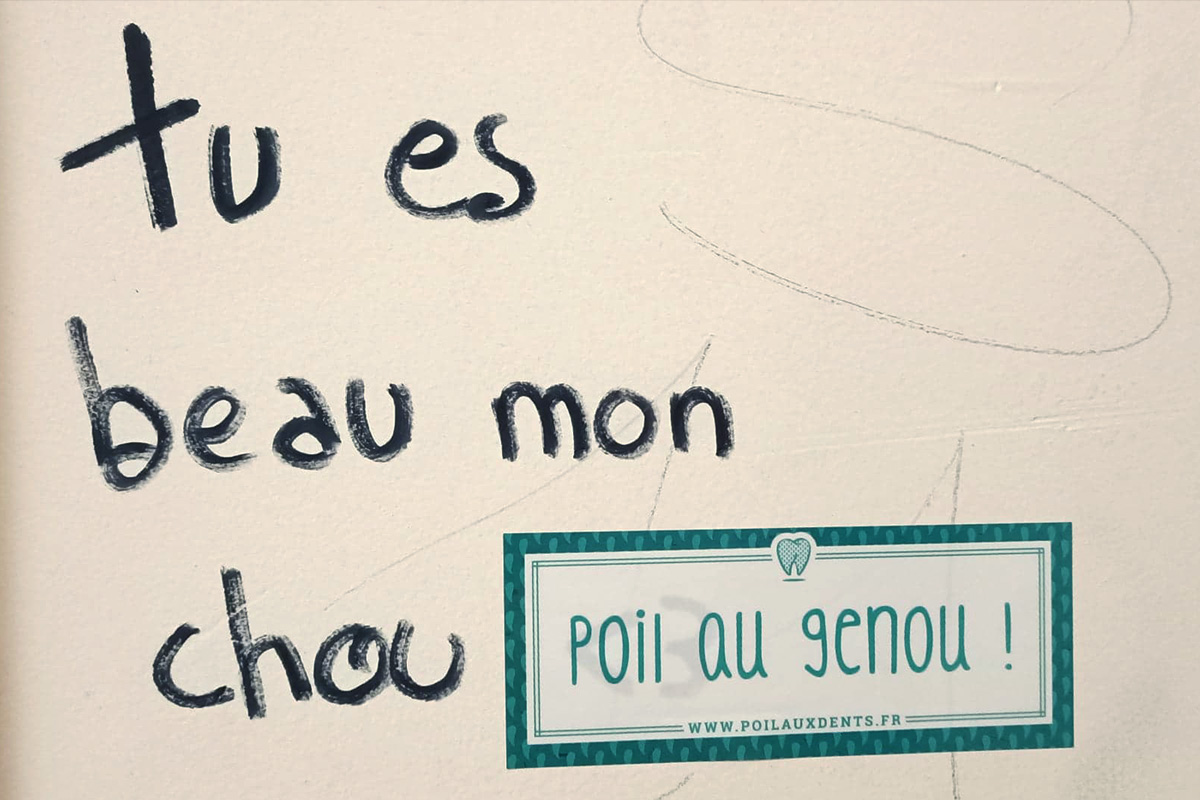 tu es
beau mon
chou
Poil au genou !
WWW.POILAUXDENTS.FR